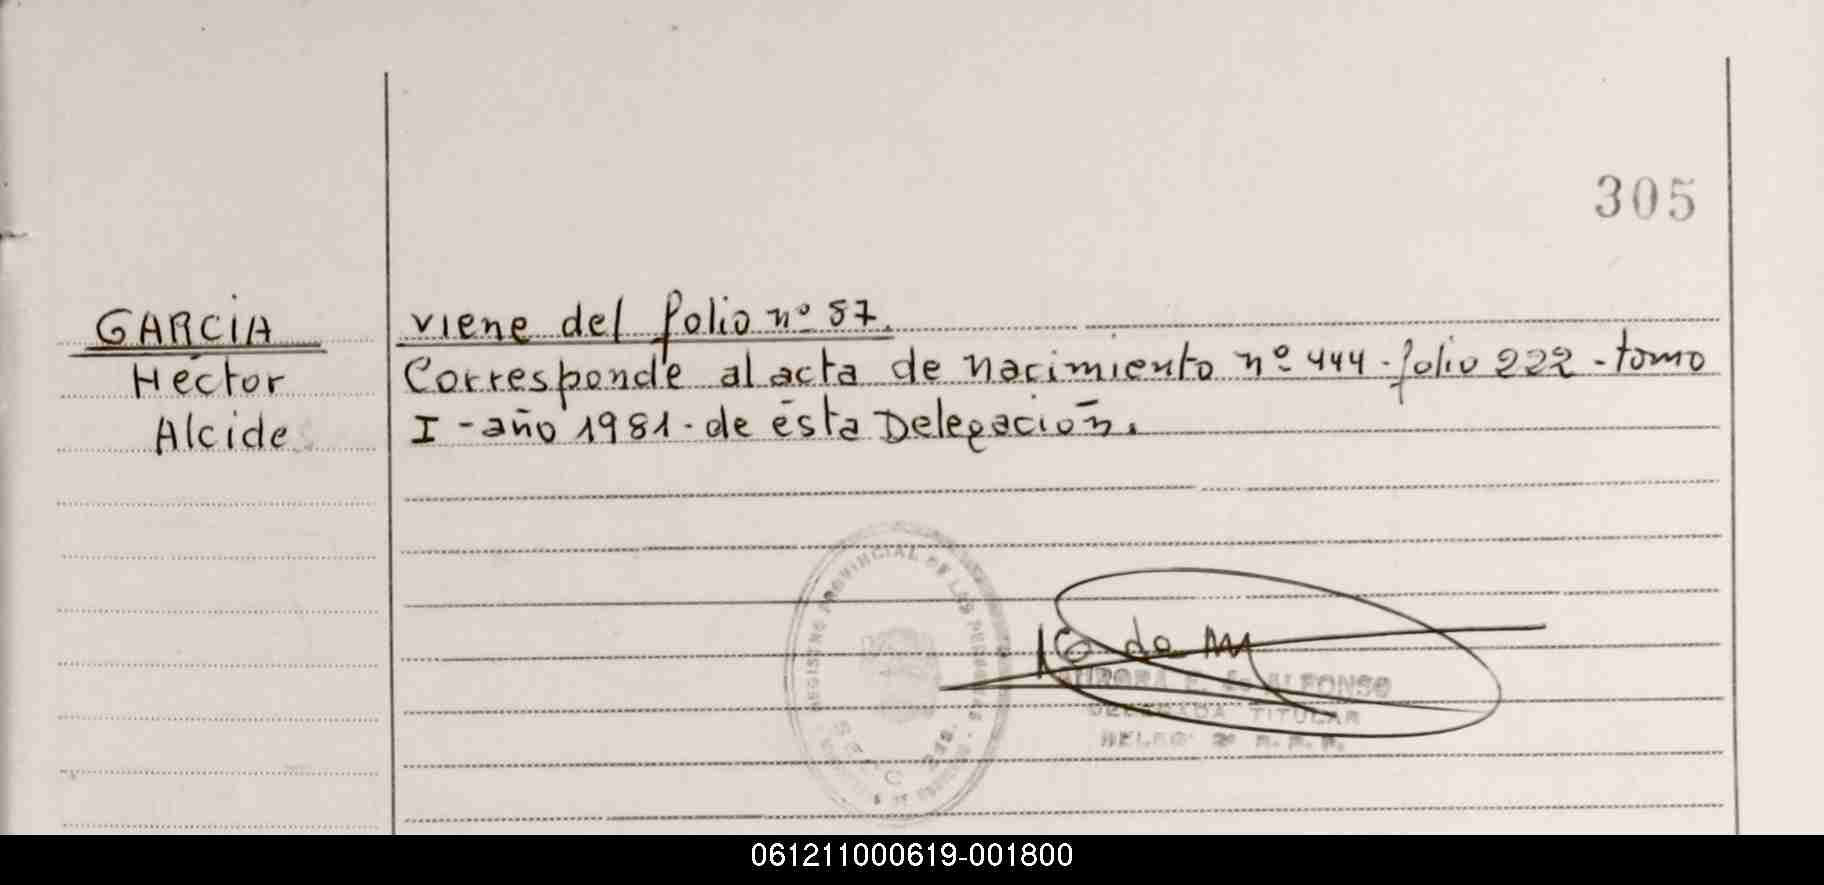 305
GARCIA
Héctor
Alcide
viene del folio nº 87.
Corresponde al acta de nacimiento nº 444 - folio 222 - tomo
I - año 1981 - de ésta Delegación.
REGISTRO PROVINCIAL DE LAS PERSONAS
AURORA E. de ALFONSO
DELEGADA TITULAR
DELEG. 2º R. P. P.
061211000619-001800